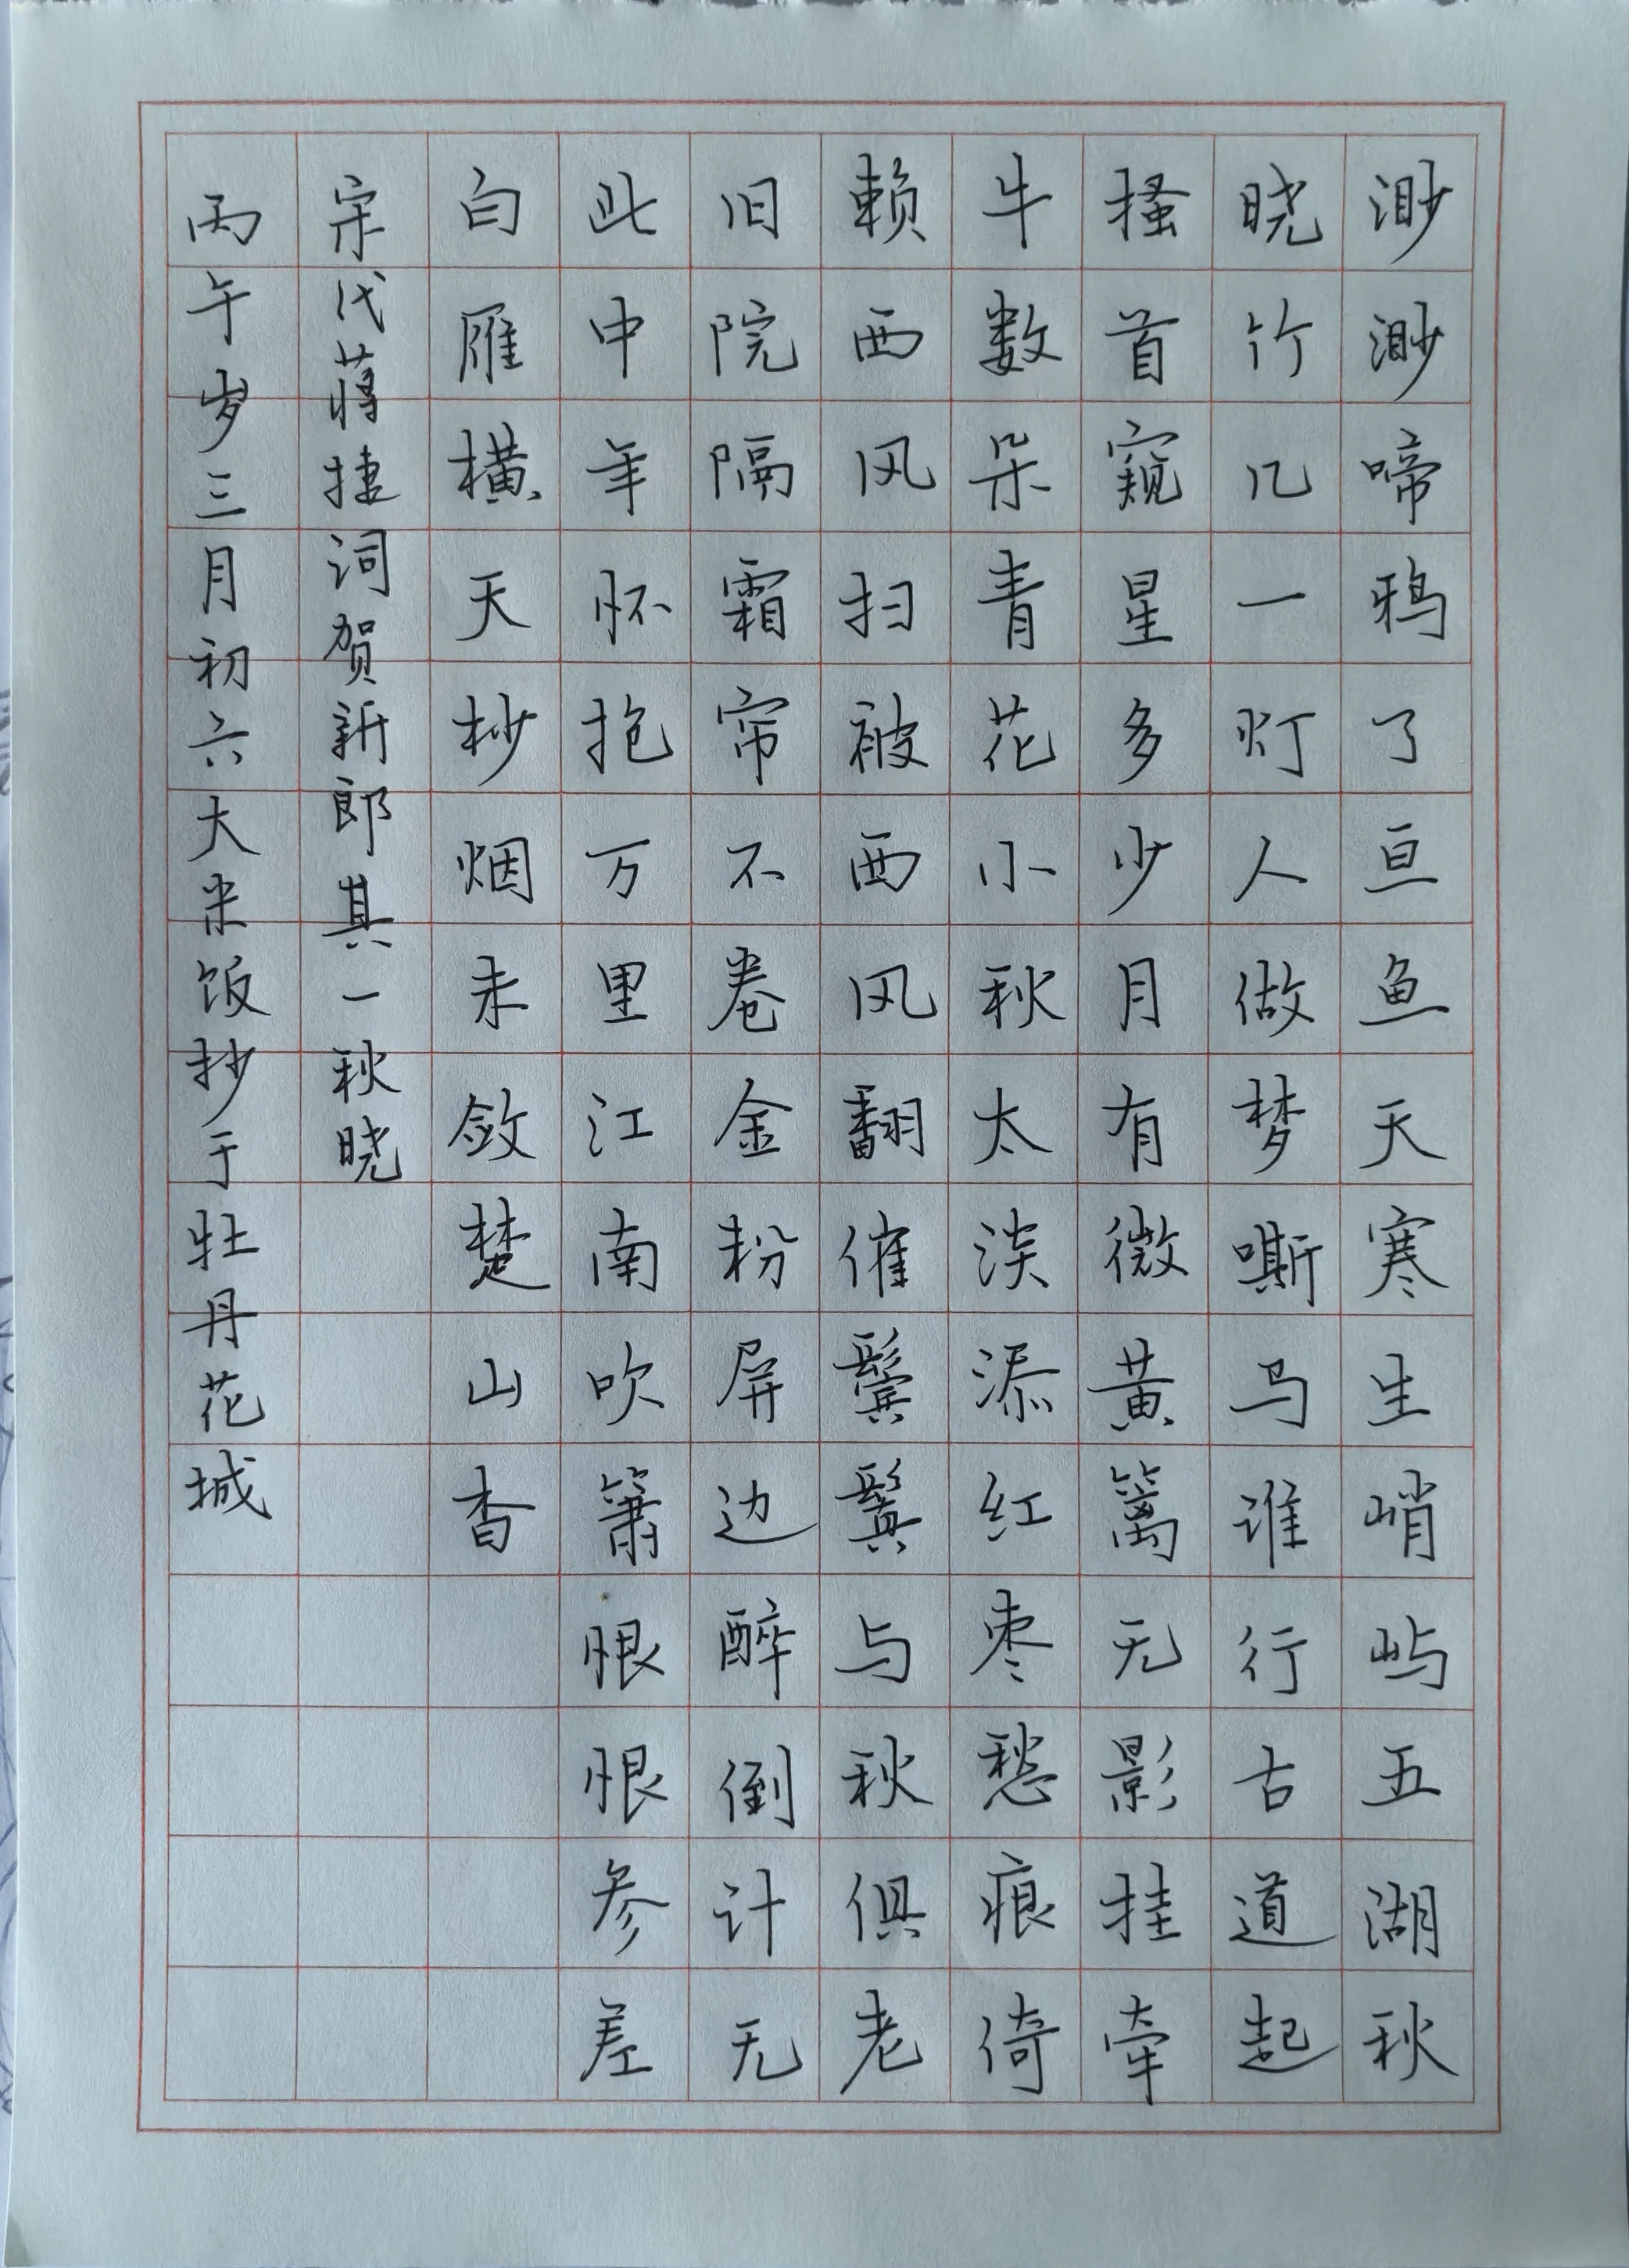 渺渺啼鸦了亘鱼天寒生峭屿五湖秋
晓竹几一灯人做梦嘶马谁行古道起
搔首窥星多少月有微黄篱无影挂牵
牛数朵青花小秋太淡添红枣愁痕倚
赖西风扫被西风翻催鬓鬒与秋俱老
旧院隔霜帘不卷金粉屏边醉倒计无
此中年怀抱万里江南吹箫恨恨参差
白雁横天杪烟未敛楚山杳
宋代蒋捷词贺新郎其一秋晓
丙午岁三月初六大米饭抄于牡丹花城